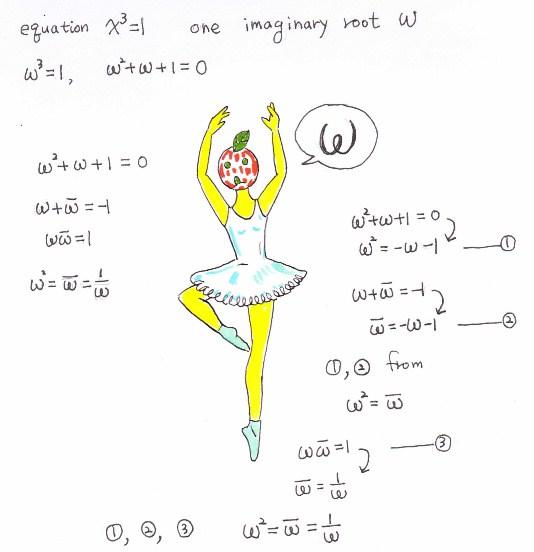 equation x³=1 one imaginary root ω
ω³=1, ω²+ω+1=0
ω
ω²+ω+1=0
ω+ω̄=-1
ωω̄=1
ω²=ω̄=1/ω
ω²+ω+1=0
ω²=-ω-1 ①
ω+ω̄=-1
ω̄=-ω-1 ②
①,② from
ω²=ω̄
ωω̄=1 ③
ω̄=1/ω
①, ②, ③ ω²=ω̄=1/ω